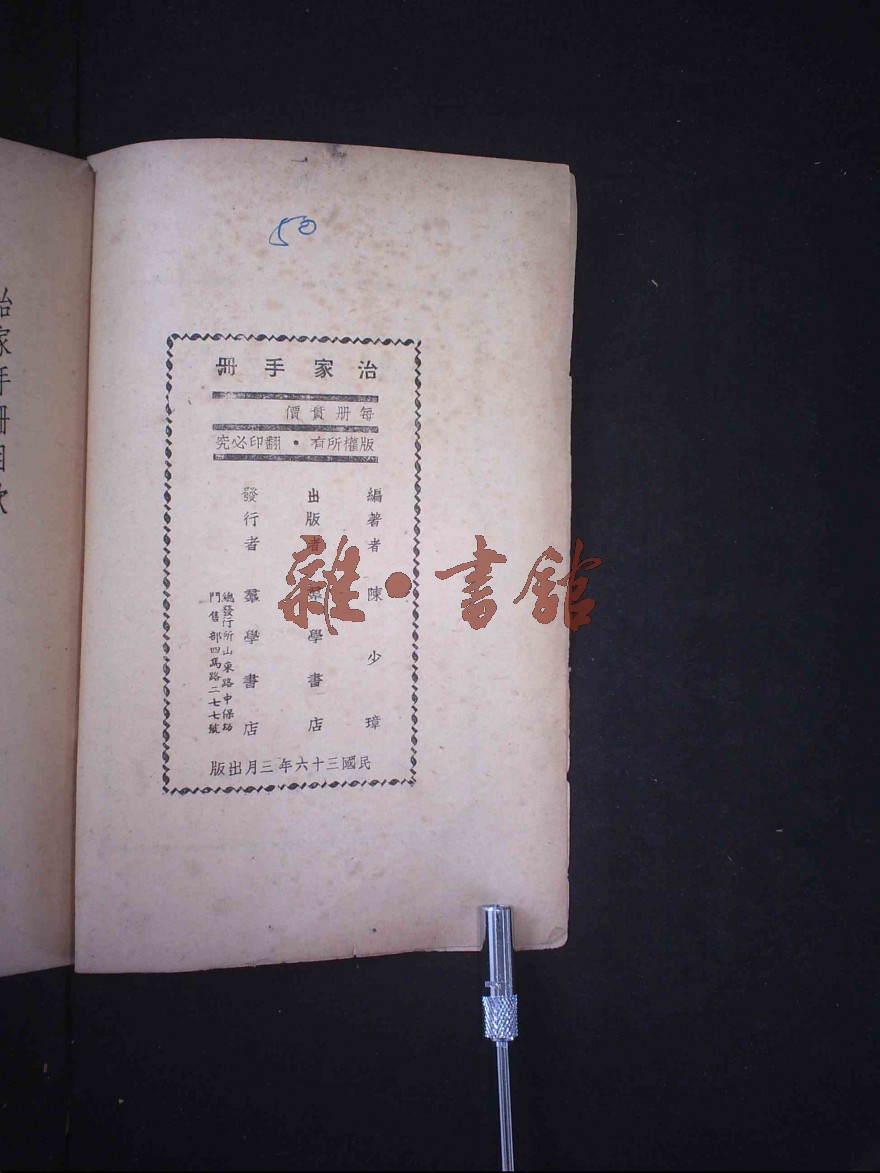 50
治家手冊
每冊實價
版權所有・翻印必究
編著者 陳少璋
出版者 羣學書店
發行者 羣學書店
總發行所山東路中保坊
門售部四馬路二七七號
民國三十六年三月出版
治家手冊目次
雜・書館